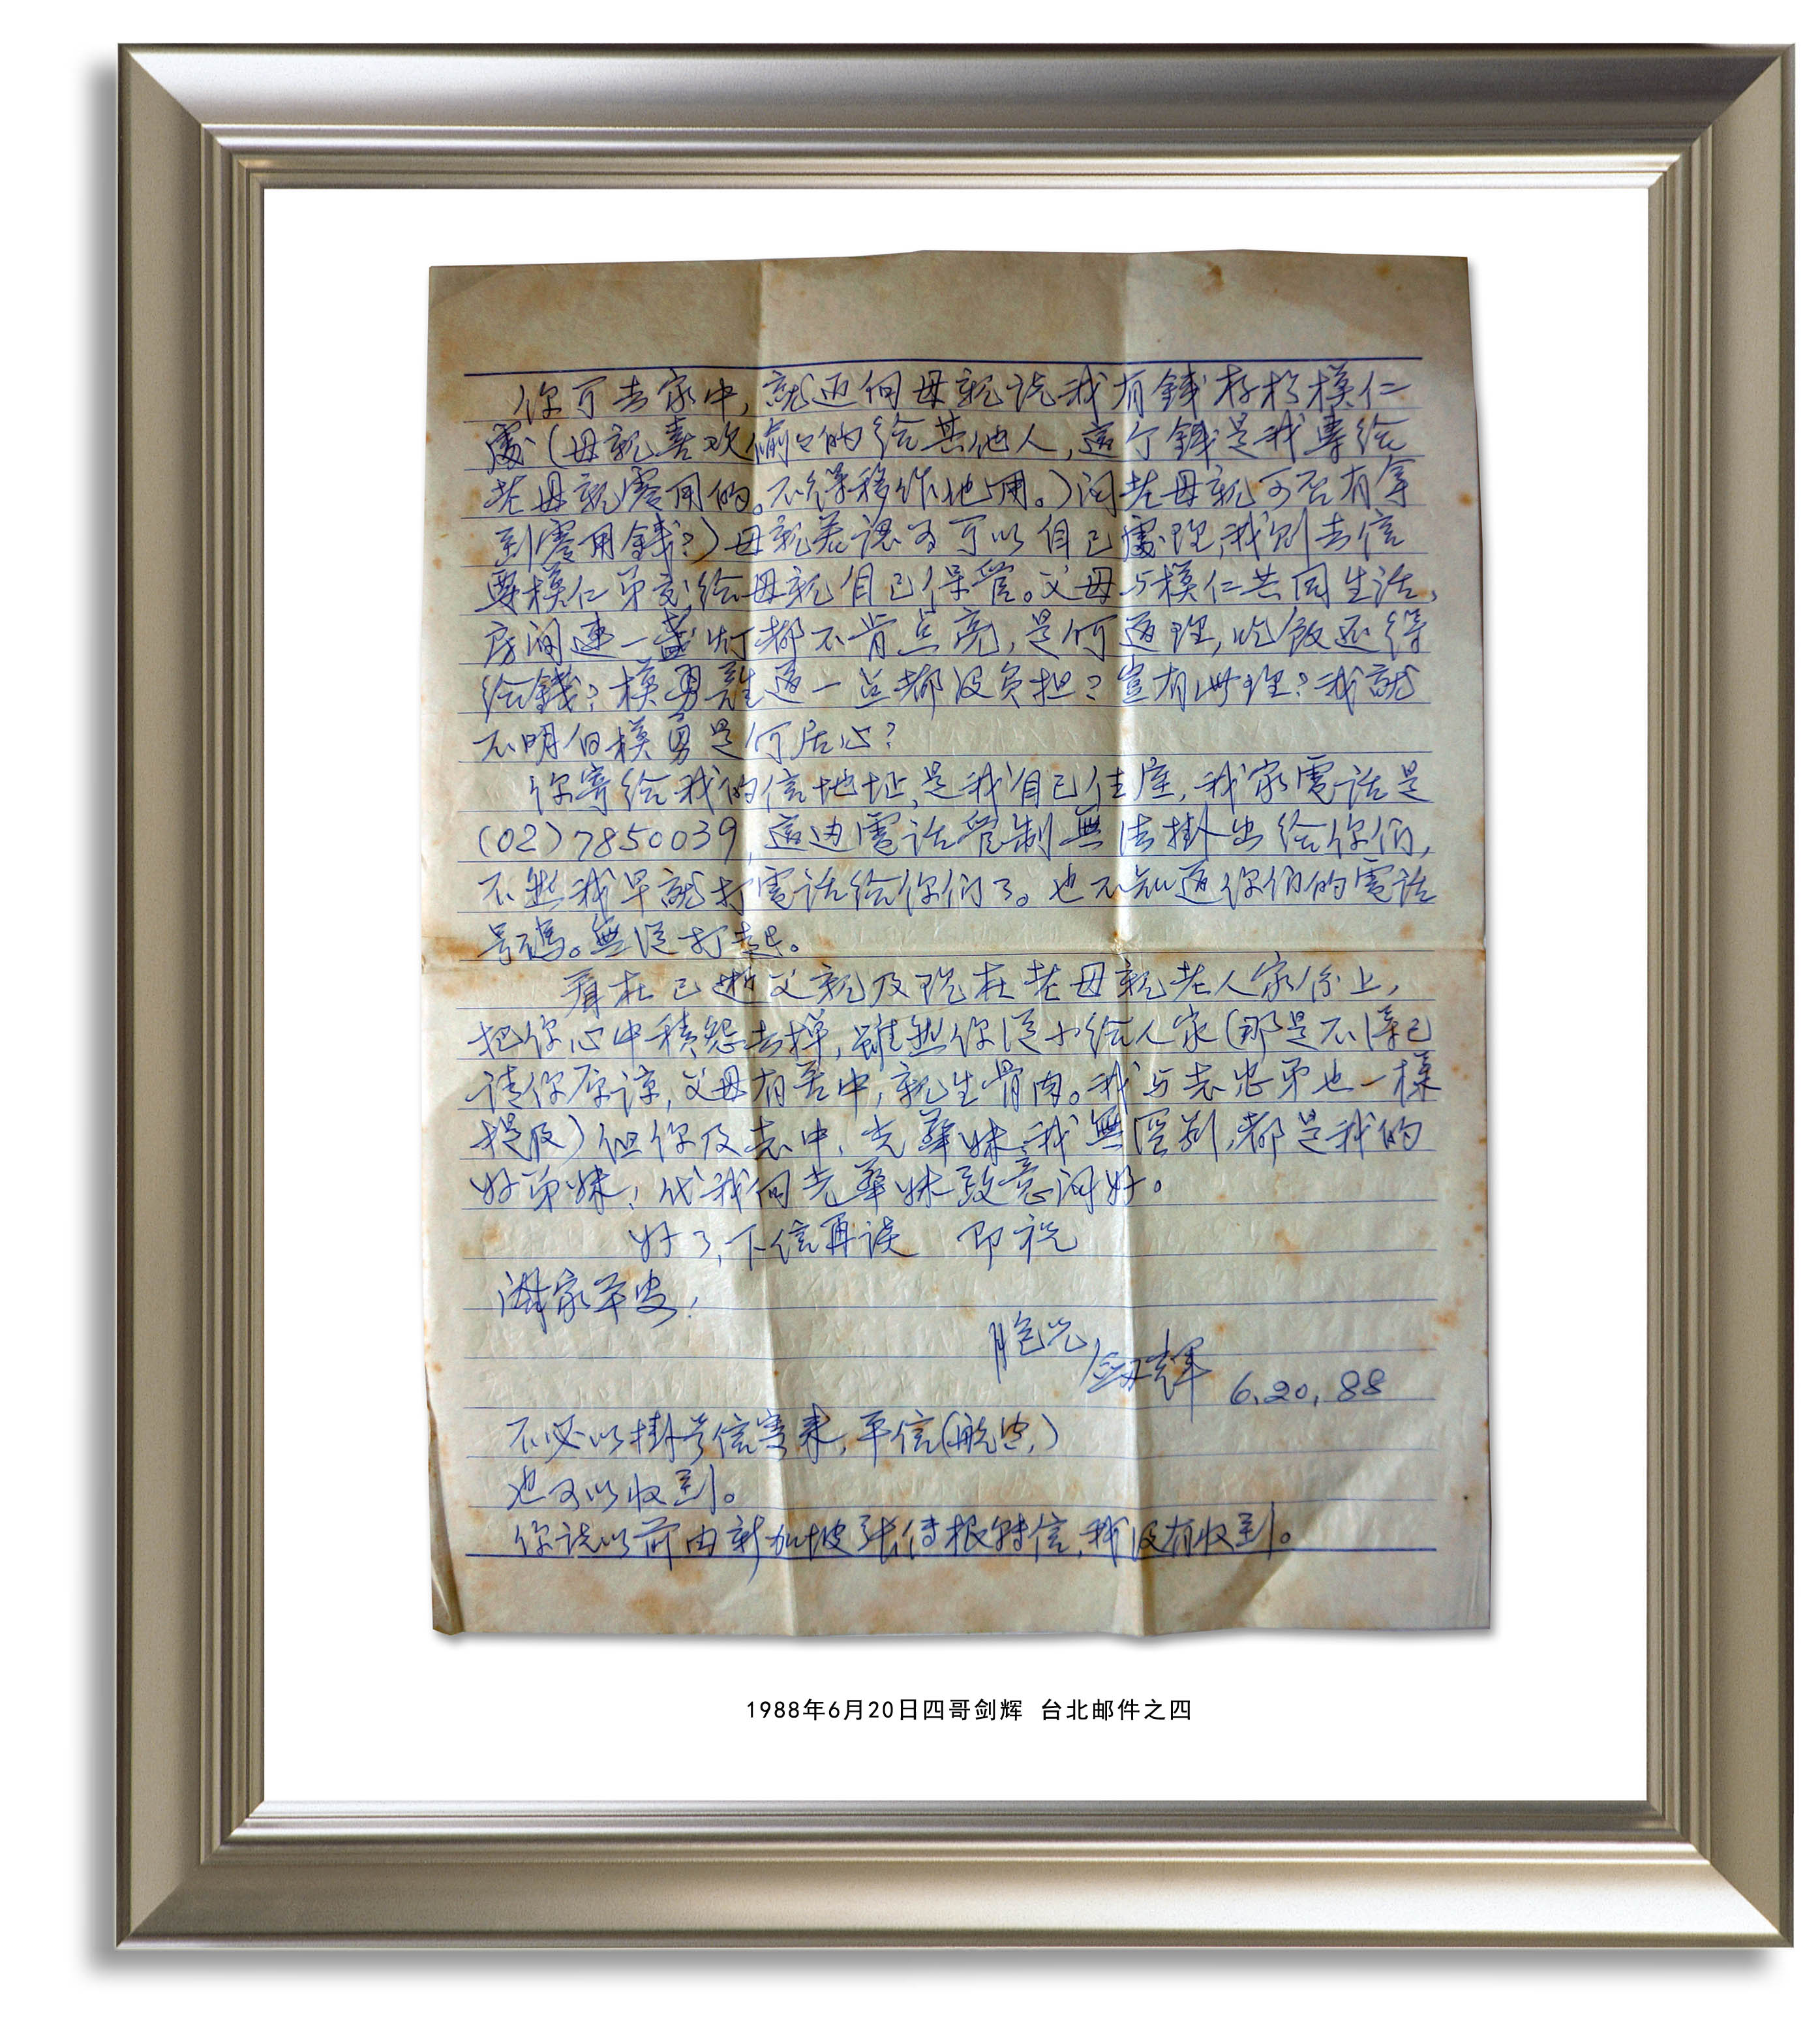 你可去家中,就近向母親說我有錢存於模仁
處(母親喜欢偷々的给其他人,這个錢是我專给
老母親零用的。不得移作他用。)问老母親可否有拿
到零用錢?)母親若認为可以自己處理,我则去信
要模仁弟交给母親自己保管。父母与模仁共同生活,
房间連一盞灯都不肯点亮,是何道理,吃飯还得
给錢?模勇難道一点都没负担?豈有此理?我就
不明白模勇是何居心?
你寄给我的信地址,是我自己住屋,我家電话是
(02)7850039,這边電话管制無法掛出给你们,
不然我早就打電话给你们了。也不知道你们的電话
号碼。無從打起。
看在已逝父親及现在老母親老人家份上,
把你心中積怨去掉,雖然你從小给人家(那是不得已
请你原谅,父母有苦中,親生骨肉。我与志忠弟也一樣
提及)但你及志中、光華妹,我無區别,都是我的
好弟妹!代我向光華妹致意问好。
好了,下信再谈 即祝
闔家平安!
胞兄
剑辉 6,20,88
不必以掛号信寄来,平信(航空,)
也可以收到。
你说以前由新加坡張待根转信,我没有收到。
1988年6月20日四哥剑辉 台北邮件之四